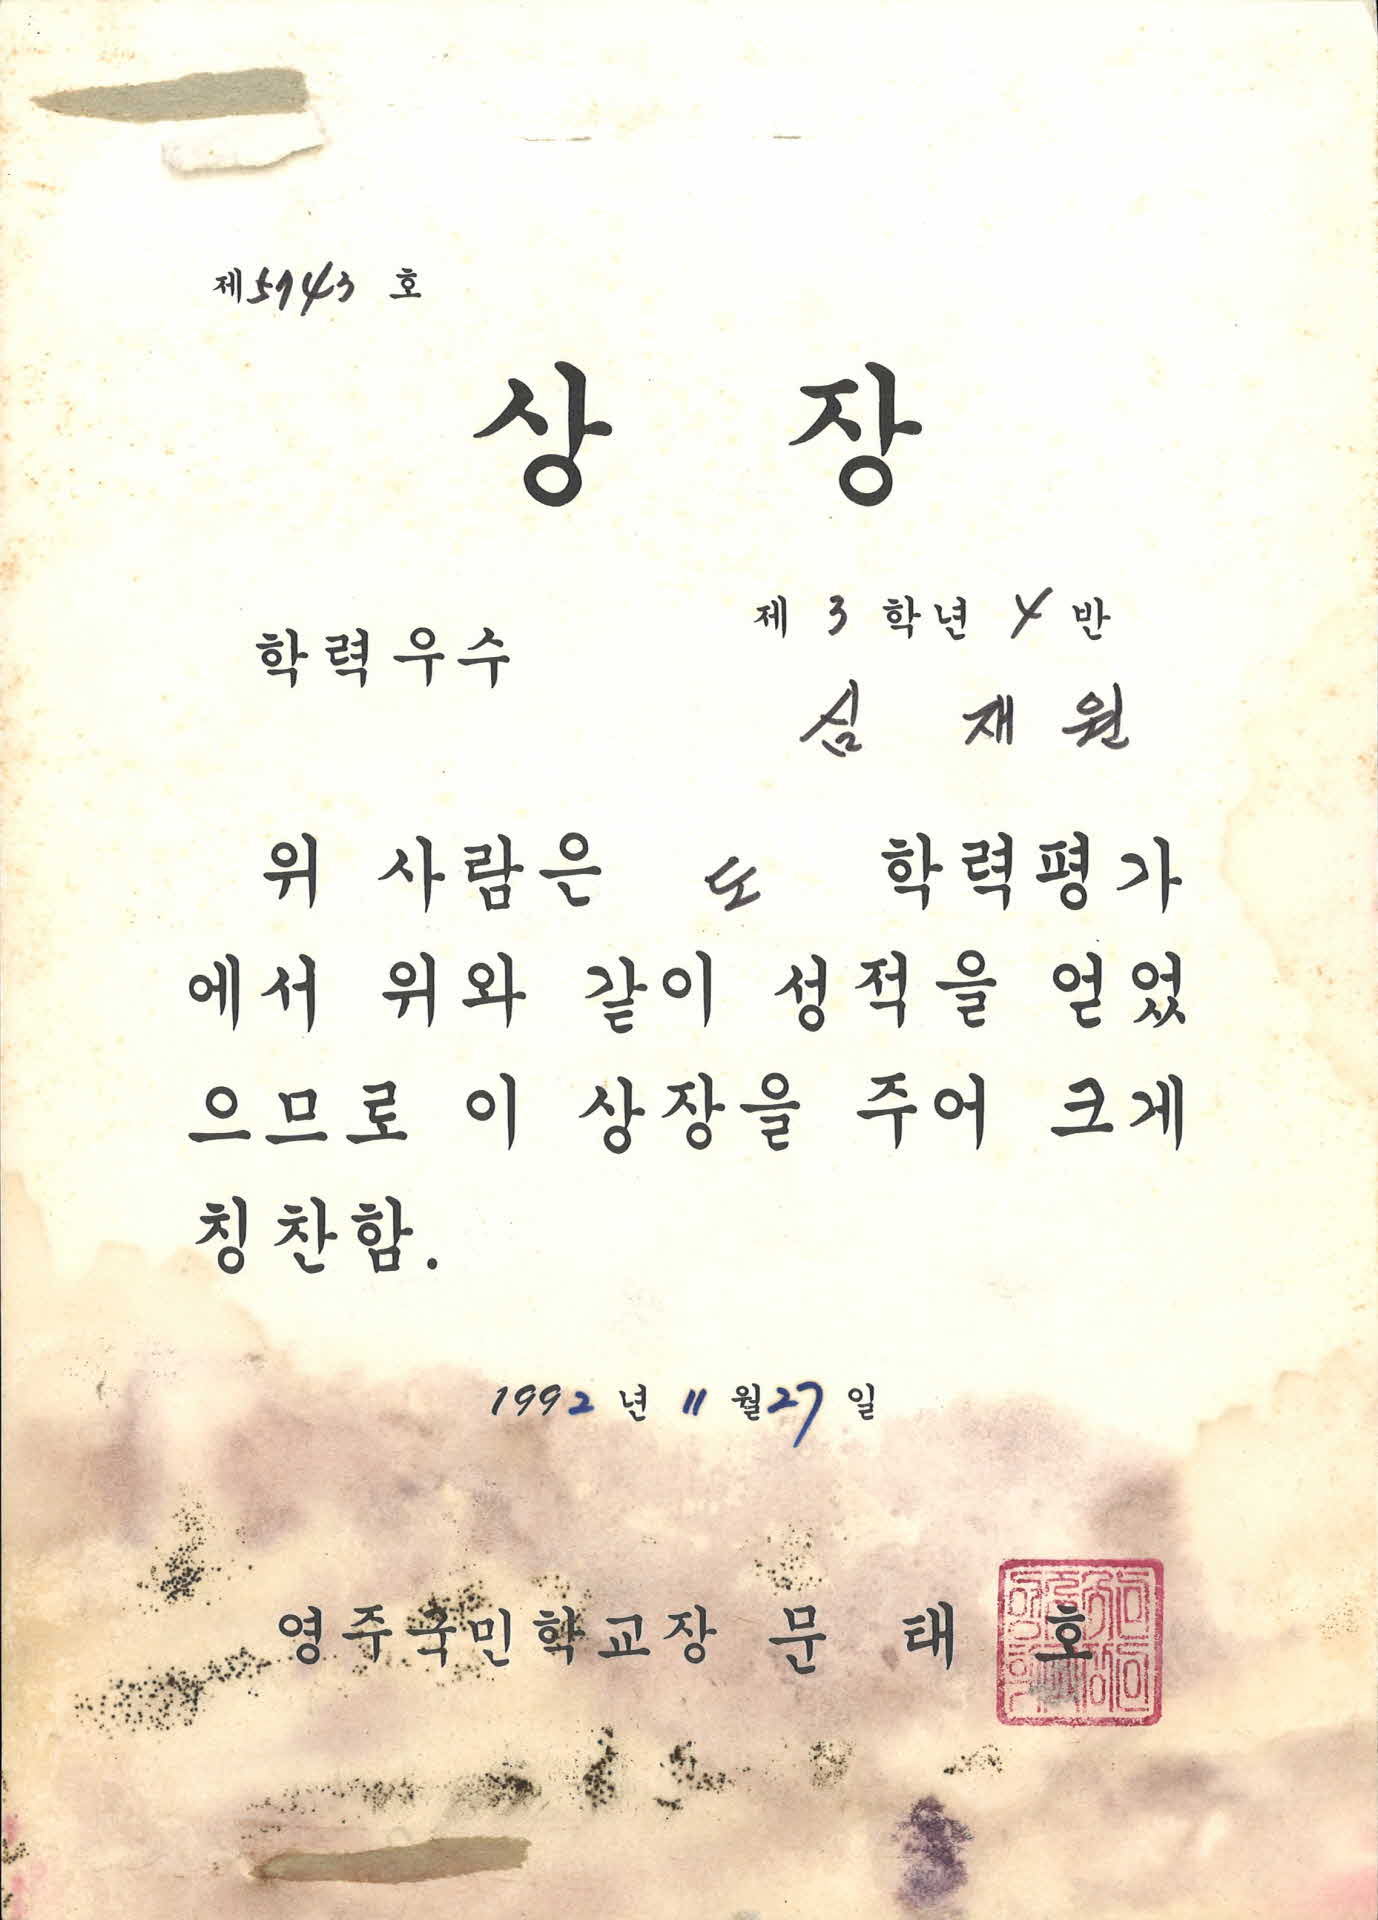 제5743 호
상 장
학력우수
제 3 학년 4 반
심 재 원
위 사람은 도 학력평가
에서 위와 같이 성적을 얻었
으므로 이 상장을 주어 크게
칭찬함.
1992 년 11 월 27 일
영주국민학교장 문 태 호